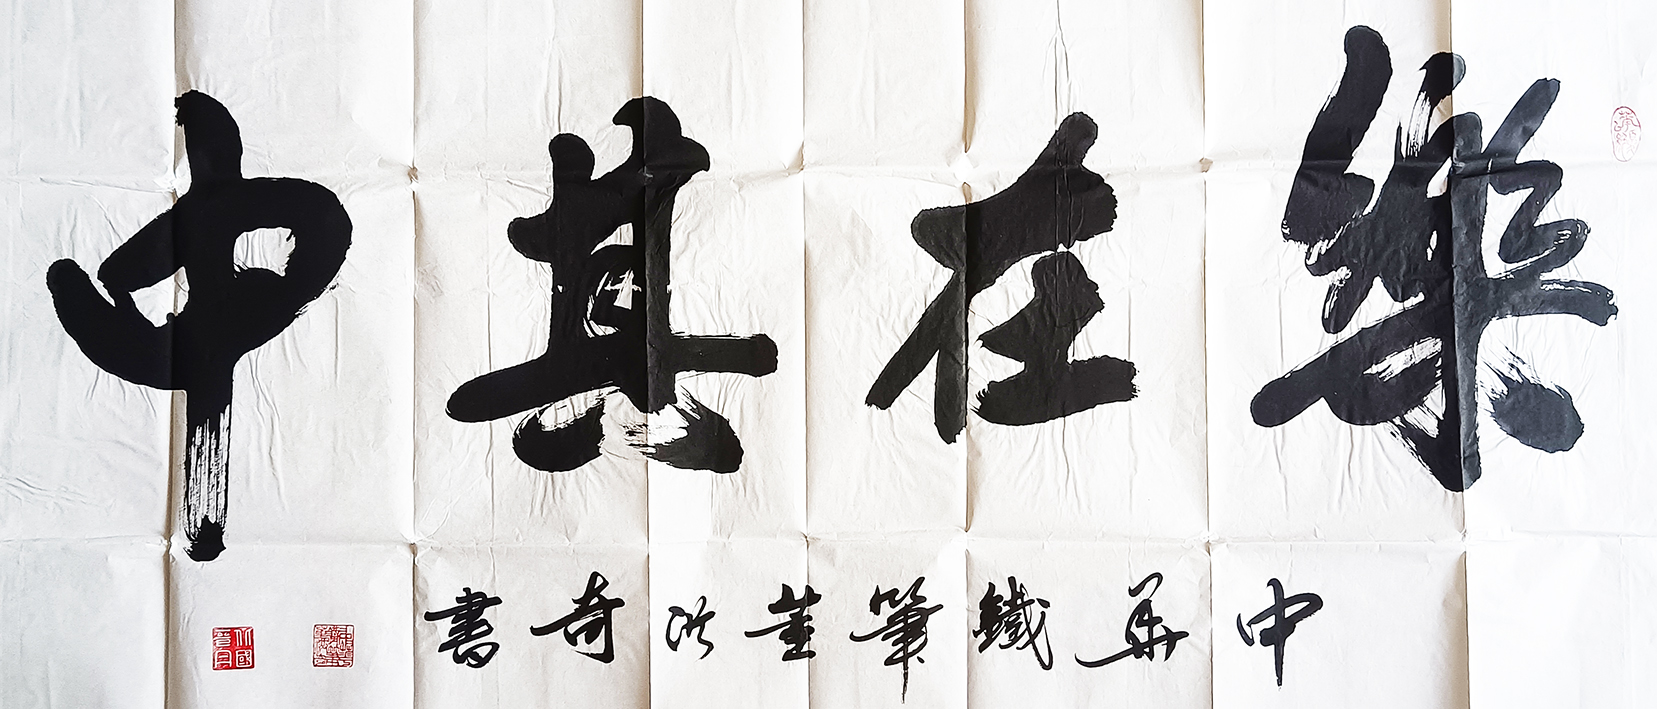 樂在其中
中華鐵筆董沂奇書